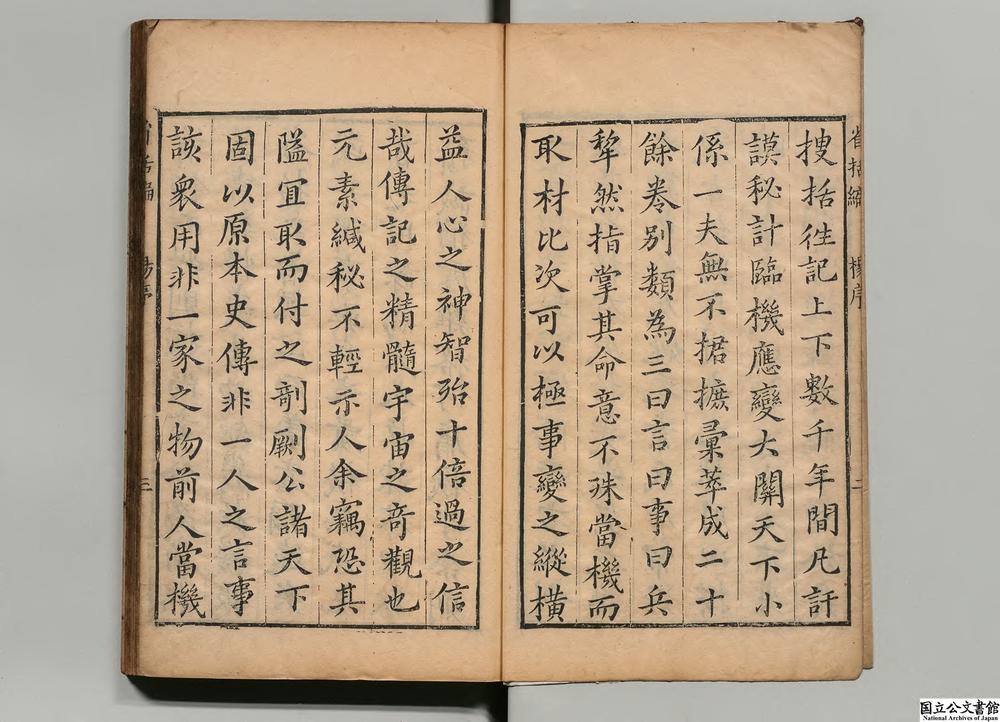 搜括往記上下數千年間凡訏
謨秘計臨機應變大關天下小
係一夫無不捃摭彙萃成二十
餘卷別類為三曰言曰事曰兵
犂然指掌其命意不殊當機而
取材比次可以極事變之縱橫
益人心之神智殆十倍過之信
哉傳記之精髓宇宙之奇觀也
元素緘秘不輕示人余竊恐其
隘宜取而付之剞劂公諸天下
固以原本史傳非一人之言事
該衆用非一家之物前人當機
省括編 楊序 二
三
国立公文書館
National Archives of Japan